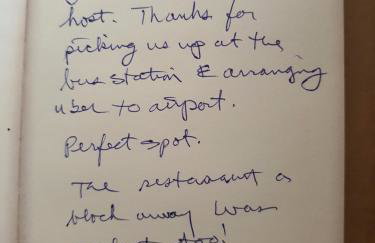 host. Thanks for
picking us up at the
bus station & arranging
uber to airport.
Perfect spot.
The restaurant a
block away was